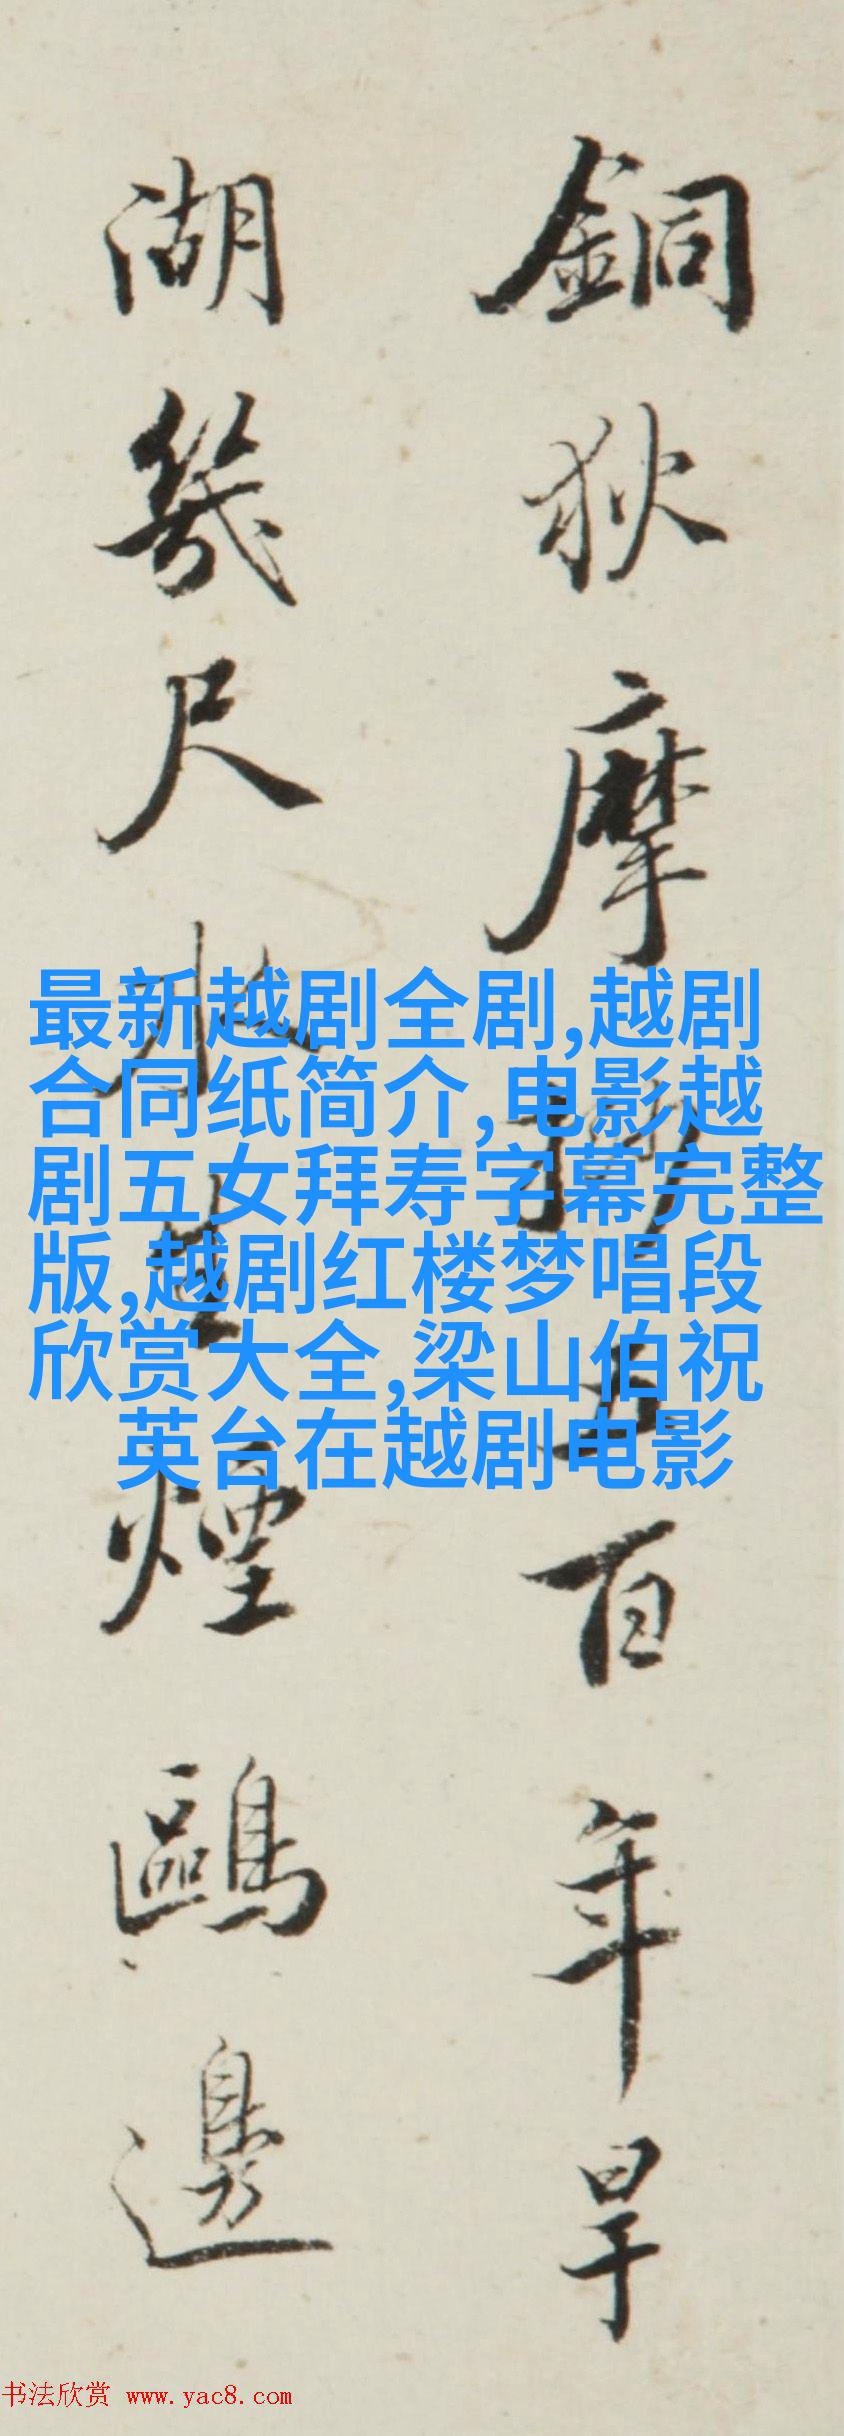 銅狄摩五百年旱
湖幾尺水煙鷗邊
最新越剧全剧,越剧
合同纸简介,电影越
剧五女拜寿字幕完整
版,越剧红楼梦唱段
欣赏大全,梁山伯祝
英台在越剧电影
书法欣赏 www.yac8.com